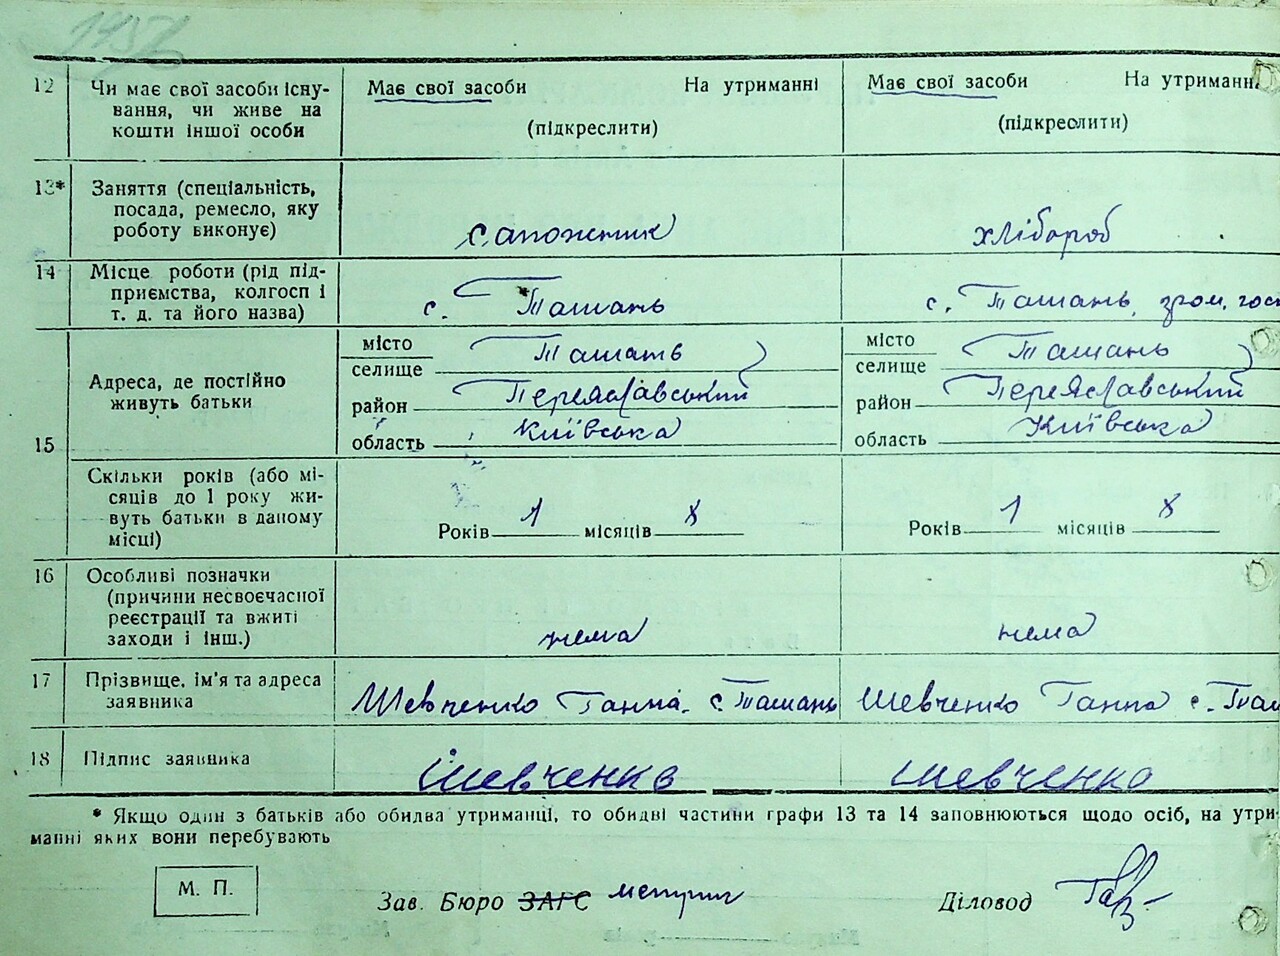 1957
12 Чи має свої засоби існу- Має свої засоби На утриманні Має свої засоби На утриманн
вання, чи живе на
кошти іншої особи (підкреслити) (підкреслити)
13* Заняття (спеціальність,
посада, ремесло, яку
роботу виконує) сапожник хлібороб
14 Місце роботи (рід під-
приємства, колгосп і
т. д. та його назва) с. Ташань с. Ташань, гром. гос
15 Адреса, де постійно
живуть батьки
місто Ташань місто Ташань
селище селище
район Переяславський район Переяславський
область Київська область Київська
Скільки років (або мі-
сяців до 1 року жи-
вуть батьки в даному
місці) Років 1 місяців 8 Років 1 місяців 8
16 Особливі позначки
(причини несвоєчасної
реєстрації та вжиті
заходи і інш.) нема нема
17 Прізвище, ім'я та адреса
заявника Шевченко Ганна. с. Ташань Шевченко Ганна с. Таш
18 Підпис заявника Шевченко Шевченко
* Якщо один з батьків або обидва утриманці, то обидві частини графи 13 та 14 заповнюються щодо осіб, на утри-
манні яких вони перебувають
М. П.
Зав. Бюро ЗАГС метрик Діловод